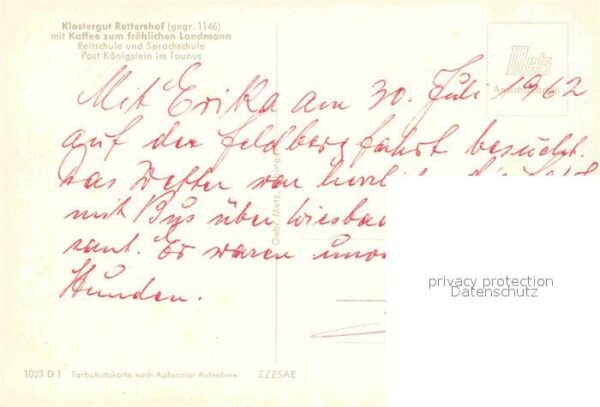 Klostergut Rettershof (gegr. 1146)
mit Kaffee zum fröhlichen Landmann
Reitschule und Sprachschule
Post Königstein im Taunus
Metz
Mit Erika am 30. Juli 1962
auf der Feldbergfahrt besucht.
Das Wetter war
mit Bus über Wiesba
sant. Es waren
Stunden.
Gebr. Metz
privacy protection
Datenschutz
1023 D 1 Farbphotokarte nach Agfacolor-Aufnahme ZZZSAE